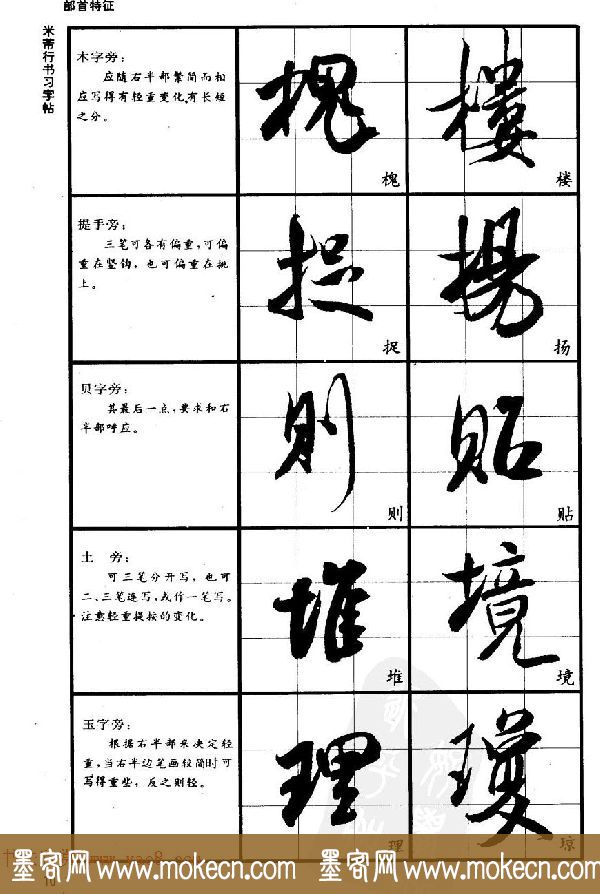 部首特征
米芾行书习字帖
木字旁：
应随右半部繁简而相
应写得有轻重变化，有长短
之分。
槐
槐
樓
楼
提手旁：
三笔可各有偏重，可偏
重在竖钩，也可偏重在挑
上。
捉
捉
揚
扬
贝字旁：
其最后一点，要求和右
半部呼应。
則
则
貼
贴
土　旁：
可三笔分开写，也可
二、三笔连写，或作一笔写。
注意轻重提按的变化。
堆
堆
境
境
玉字旁：
根据右半部来决定轻
重，当右半边笔画较简时可
写得重些，反之则轻。
理
理
瓊
琼
墨客网 www.mokecn.com 墨客网 www.mokecn.com